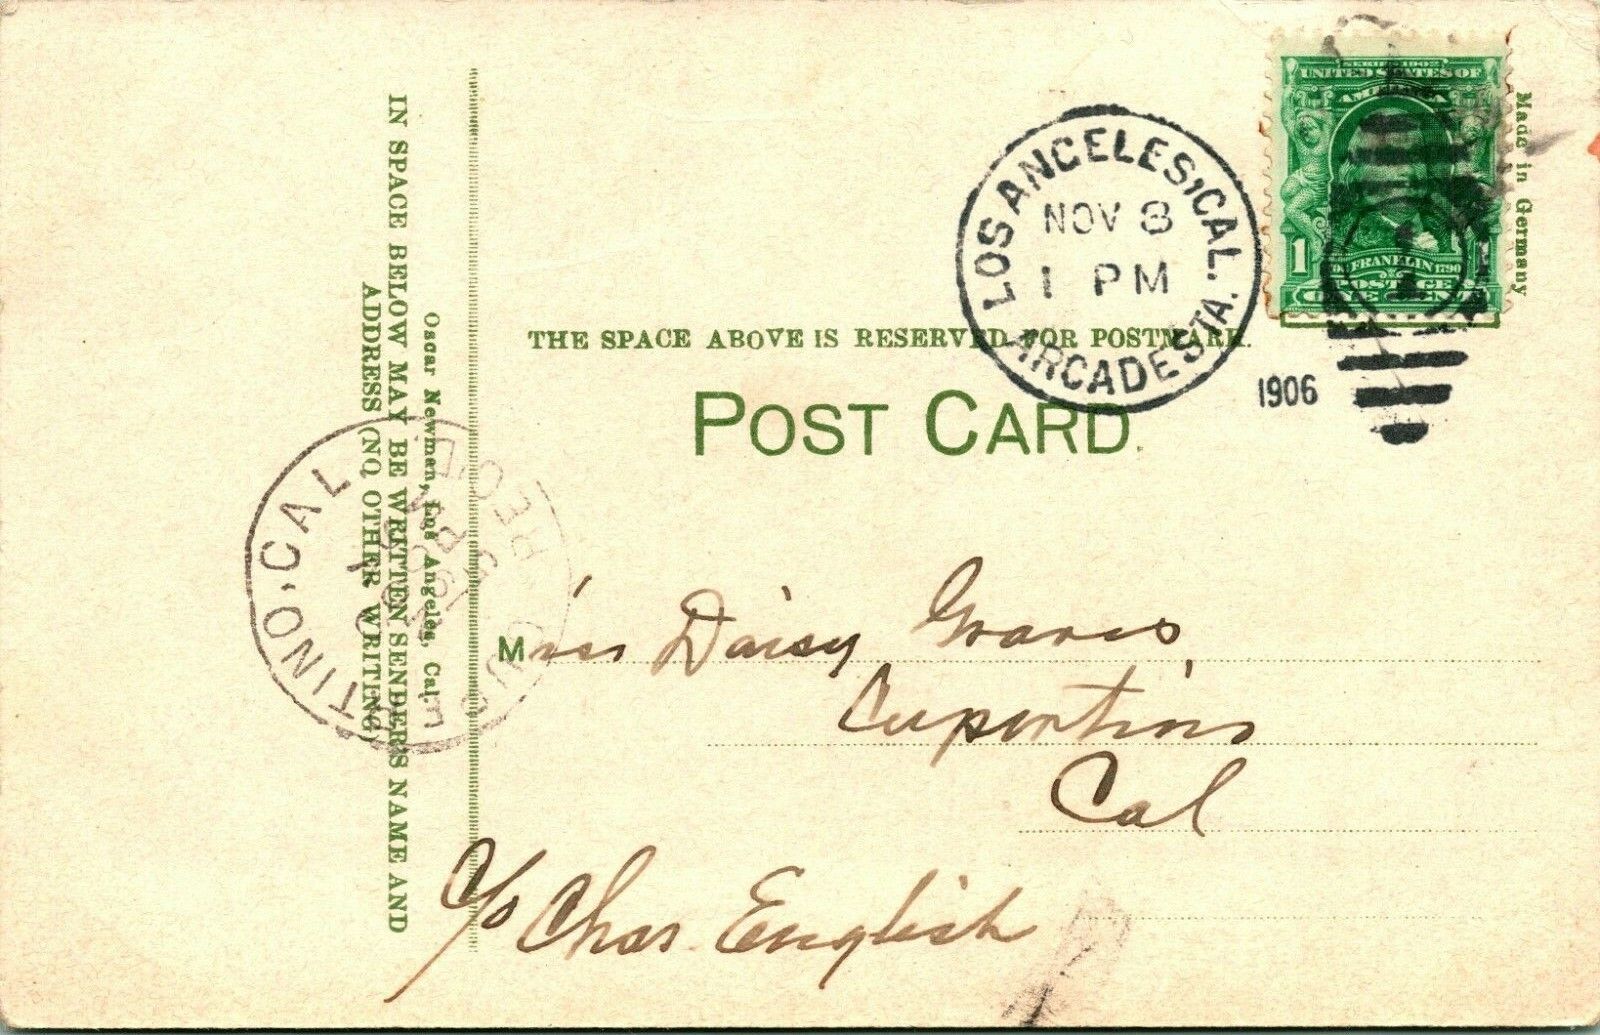 SERIES 1902
UNITED STATES OF
AMERICA
1
FRANKLIN 1790
POSTAGE
Made in Germany
LOS ANGELES, CAL.
NOV 8
1 PM
ARCADE STA.
1906
THE SPACE ABOVE IS RESERVED FOR POSTMARK.
POST CARD.
Miss Daisy Graves
Cupertino
Cal
c/o Chas English
Oscar Newman, Los Angeles, Cal.
IN SPACE BELOW MAY BE WRITTEN SENDER'S NAME AND
ADDRESS (NO OTHER WRITING)
TINO, CAL.
REC'D